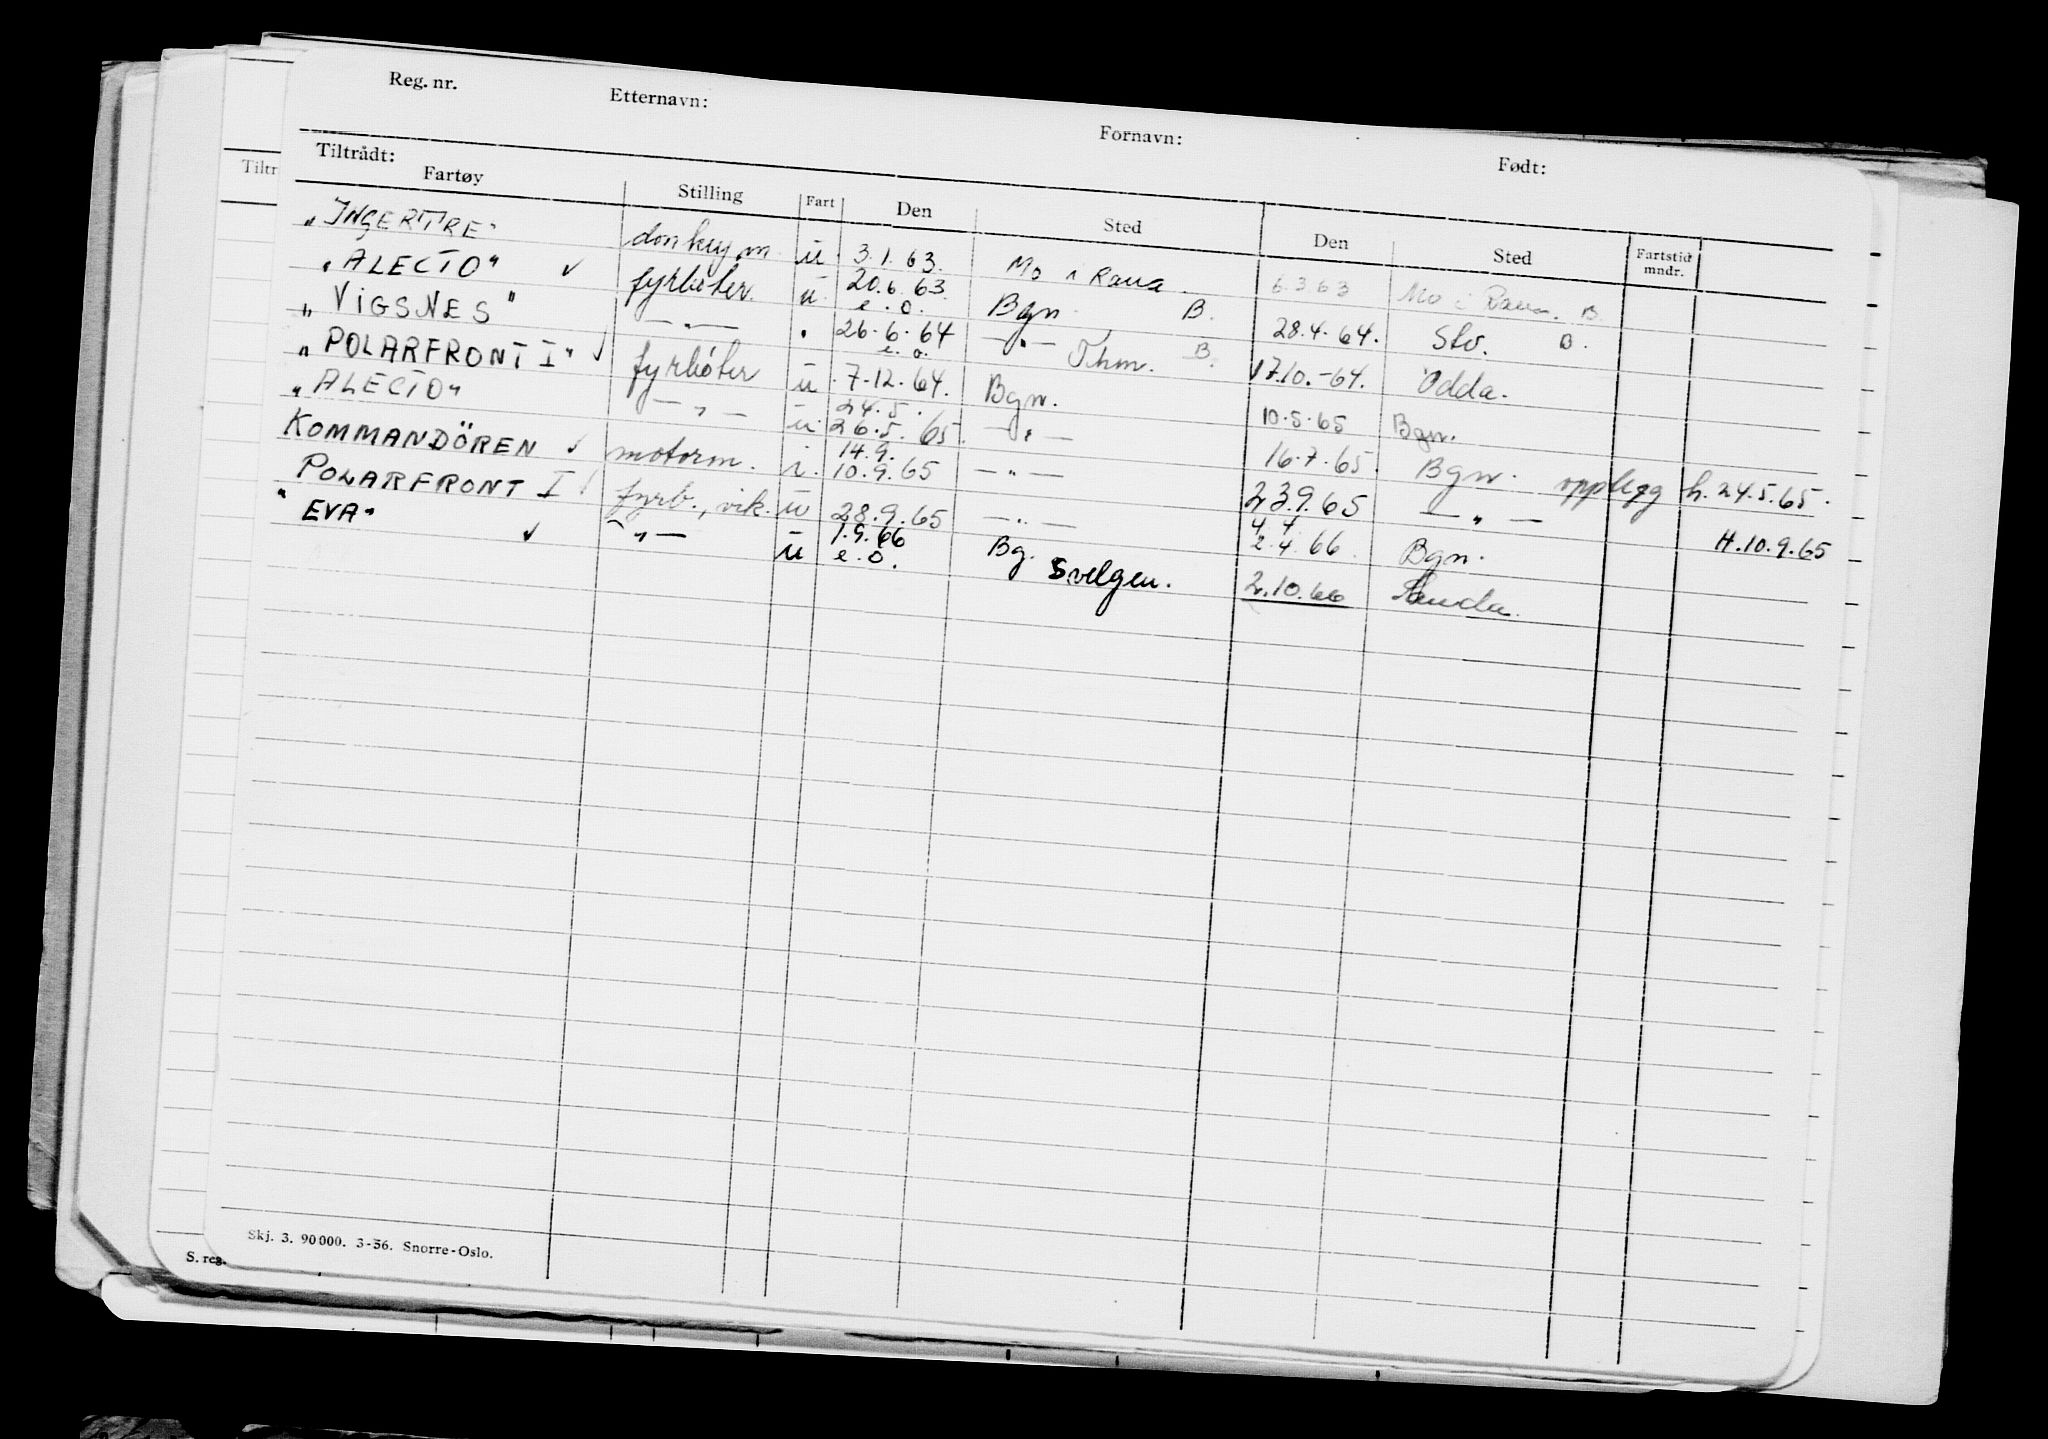 Reg. nr. Etternavn: Fornavn: Født:
Tiltrådt:
Fartøy Stilling Fart Den Sted Den Sted Fartstid mndr.
"INGERTRE" donkeym. u 3.1.63. Mo i Rana. 6.3.63 Mo i Rana. B.
"ALECTO" ✓ fyrbøter. u. 20.6.63. e.o. Bgn. B. 28.4.64. Stv. B.
"VIGSNES" — " — " 26.6.64 e.o. — " — Thm. B. 17.10.-64. Odda.
"POLARFRONT I" ✓ fyrbøter u. 7.12.64. Bgn. 10.5.65 Bgn.
"ALECTO" — " — u. 24.5. 26.5.65. — " — 16.7.65. Bgn. opplegg h. 24.5.65.
KOMMANDÖREN ✓ motorm. i. 14.9. 10.9.65 — " — 23.9.65 — " — H. 10.9.65
POLARFRONT I ✓ fyrb., vik. u 28.9.65 — " — 4.4 2.4.66. Bgn.
"EVA" ✓ — " — u 1.9.66 e.o. Bg. Svelgen. 2.10.66 Sauda.
Tiltr
Skj. 3. 90 000. 3-56. Snorre-Oslo.
S. reg.